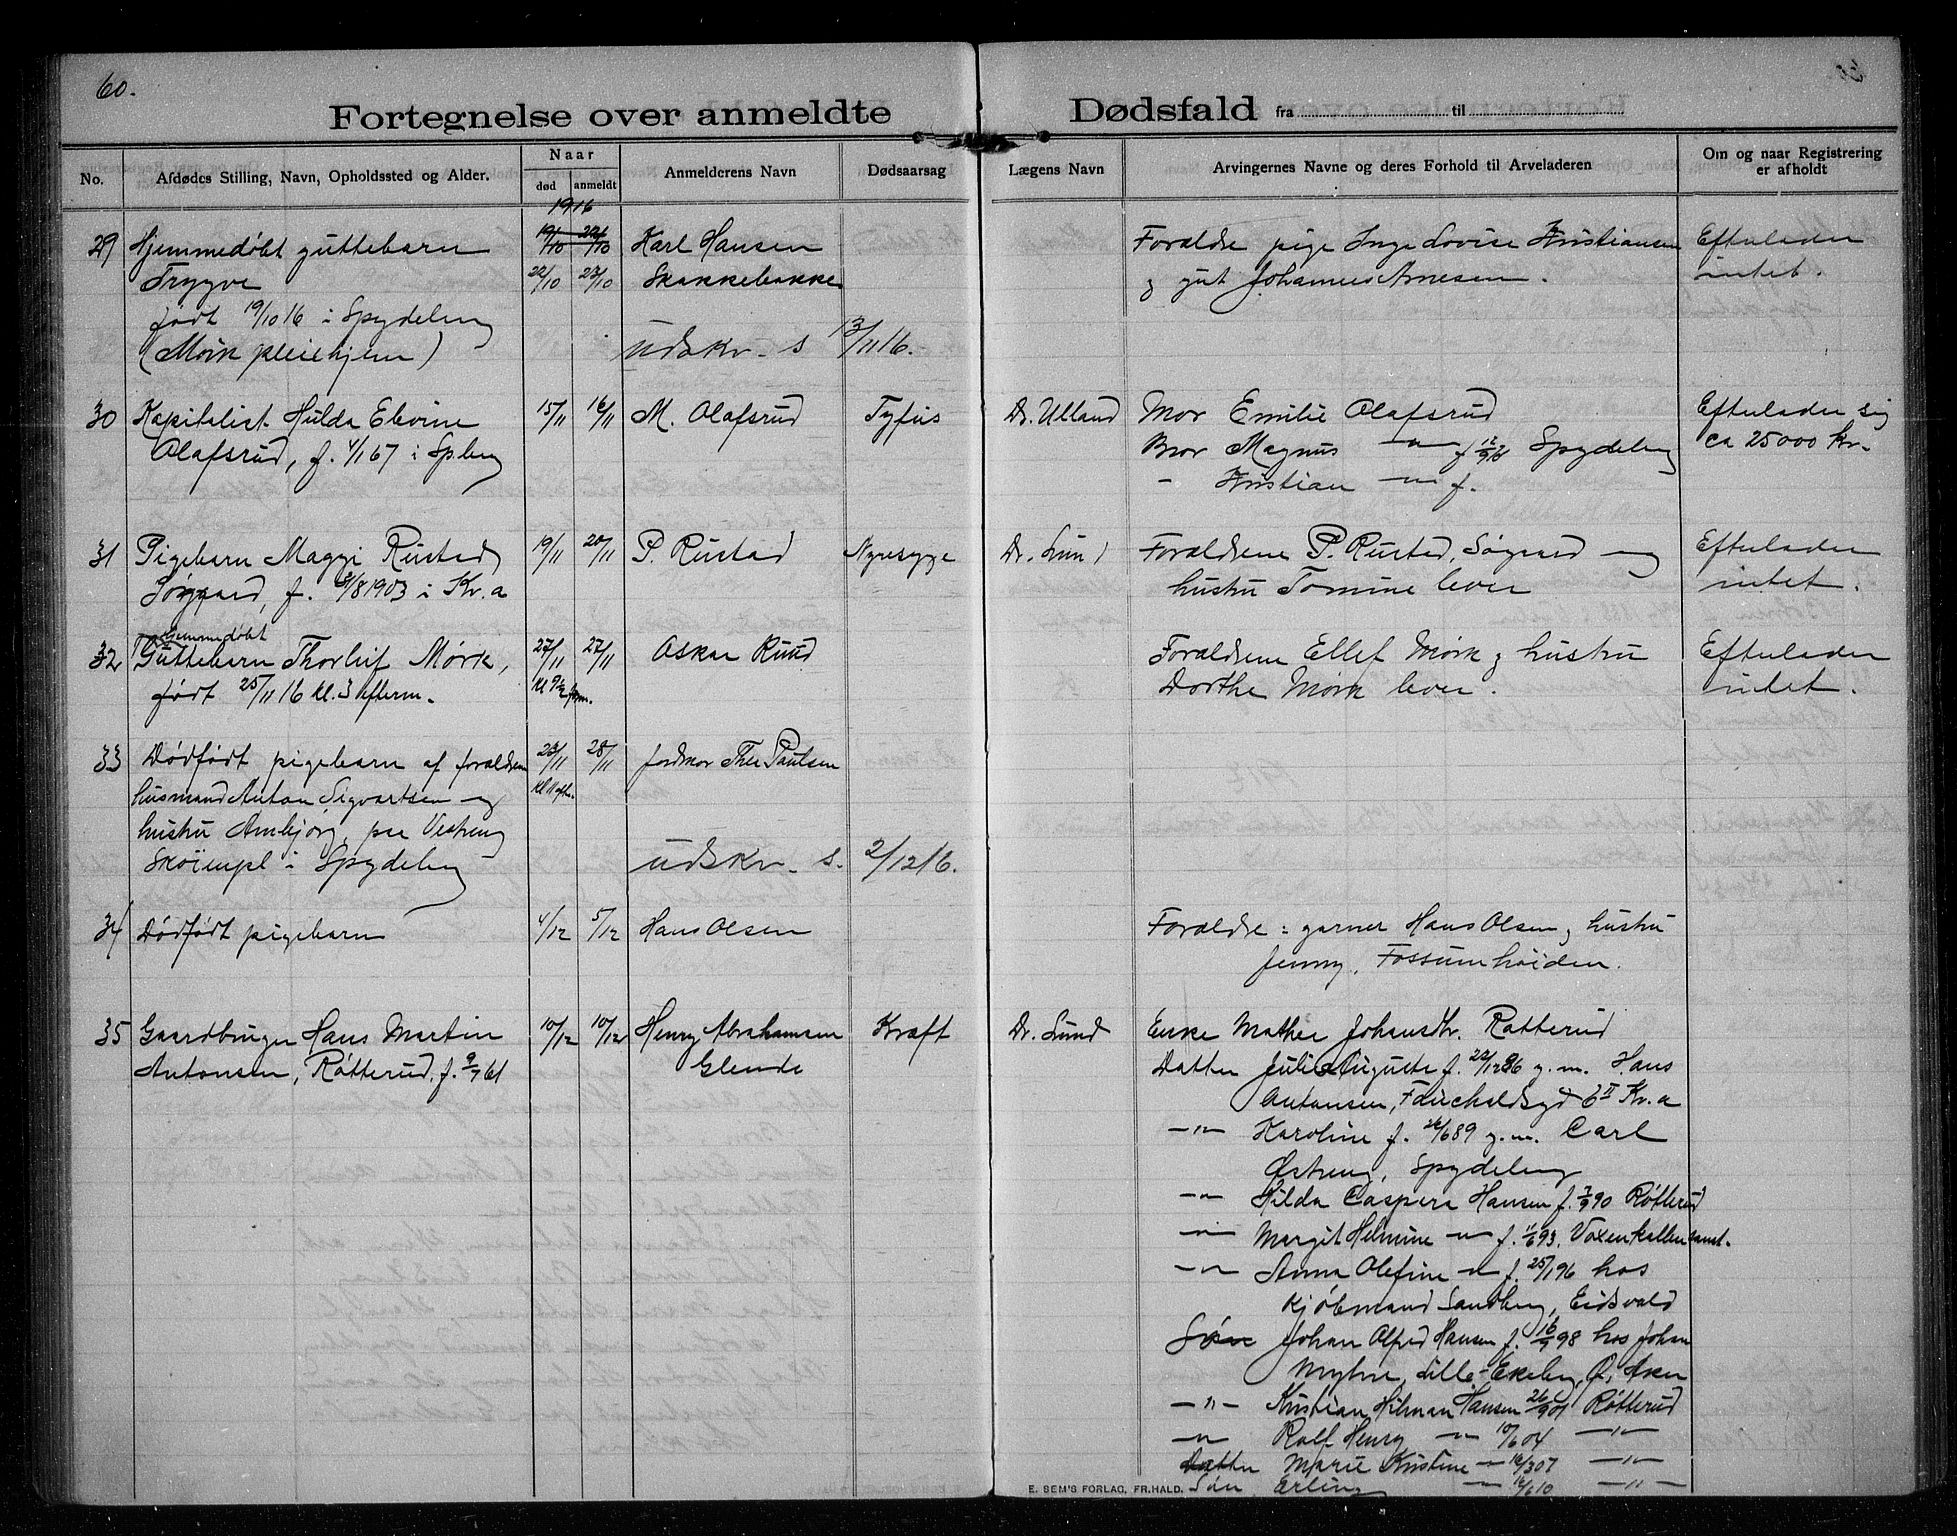 60.
Fortegnelse over anmeldte Dødsfald fra til
No.
Afdødes Stilling, Navn, Opholdssted og Alder.
Naar
død
anmeldt
Anmelderens Navn
Dødsaarsag
Lægens Navn
Arvingernes Navne og deres Forhold til Arveladeren
Om og naar Registrering
er afholdt
1916
29 Hjemmedøbt guttebarn 19/10 22/10 Karl Hansen Forældre pige Inge Lovise Kristiansen Efterlader
Trygve 22/10 23/10 Skakkebakke g gut Johannes Arnesen. intet.
født 19/10 16 i Spydeberg
(Mørk pleiehjem) Udskr. s 13/11 16.
30 Kapitalist Hulda Elevine 15/11 16/11 M. Olafsrud Tyfus Dr. Ulland Mor Emilie Olafsrud Efterlader sig
Olafsrud, f. 4/1 67 i Spberg Bror Magnus —"— f Spydeberg ca 25000 kr.
- Kristian —"— f.
31 Pigebarn Maggi Rustad 19/11 20/11 P. Rustad Nyresyge Dr. Lund Forældrene P. Rustad, Søgaard og Efterlader
Søgaard, f. /8 1903 i Kr.a hustru Tomine lever intet.
32 Hjemmedøbt
Guttebarn Thorleif Mørk, 27/11 27/11 Oskar Ruud Forældrene Ellef Mørk g hustru Efterlader
født 25/11 16 kl. 3 efterm. kl 9½ fom. Dorthe Mørk lever. intet.
33 Dødfødt pigebarn af forældrene 23/11 28/11 jordmor Thea Paulsen
husmand Anton Sigvartsen og kl 11 efm.
hustru Arnbjørg, paa Vestreng
Skoimpl i Spydeberg Udskr. s. 2/12 16.
34 Dødfødt pigebarn 4/12 5/12 Hans Olsen Forældre: garner Hans Olsen g hustru
Jenny, Fossumhøiden.
35 Gaardbruger Hans Martin 10/12 10/12 Henry Abrahamsen Kræft Dr. Lund Enke Mathea Johansdtr. Røtterud
Antonsen, Røtterud, f. 9/7 61 Glende Datter Julie Auguste f. 22/12 86 g.m. Hans
Antonsen, 6 II Kr.a
—"— Karoline f. 26/6 89 g.m. Carl
Østreng, Spydeberg
—"— Hilda Caspara Hansen f. 7/9 90 Røtterud
—"— Margit Helmine —"— f. 11/6 93. Voxenkollen sanat.
—"— Anna Olefine —"— f. 25/1 96 hos
Kjøbmand Sandberg, Eidsvold
Søn Johan Alfred Hansen f. 16/9 98 hos Johan
Myhre, Lille-Ekeberg, Ø. Aker
—"— Kristian Hilman Hansen 26/9 01 Røtterud
—"— Rolf Henry —"— 10/6 04 —"—
Datter Marie Kristine —"— 16/3 07 —"—
Søn Erling —"— 16/6 10 —"—
E. SEM'S FORLAG, FR.HALD.